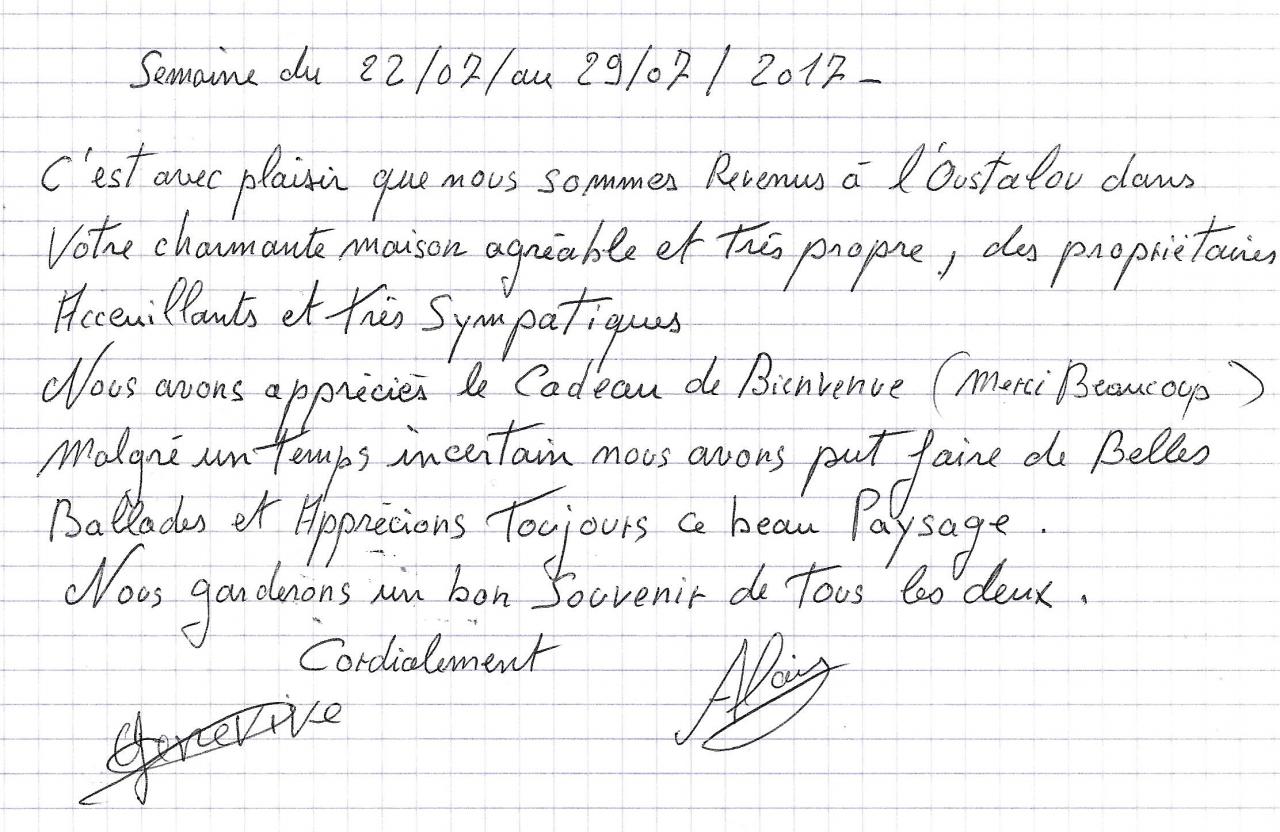 Semaine du 22/07/au 29/07/2017-
C'est avec plaisir que nous sommes Revenus à l'Oustalou dans
Votre charmante maison agréable et très propre, des propriétaires
Acceuillants et très Sympatiques
Nous avons appréciés le Cadeau de Bienvenue (Merci Beaucoup)
Malgré un temps incertain nous avons put faire de Belles
Ballades et Apprécions Toujours ce beau Paysage.
Nous garderons un bon Souvenir de Tous les deux.
Cordialement
Alain
Genevive